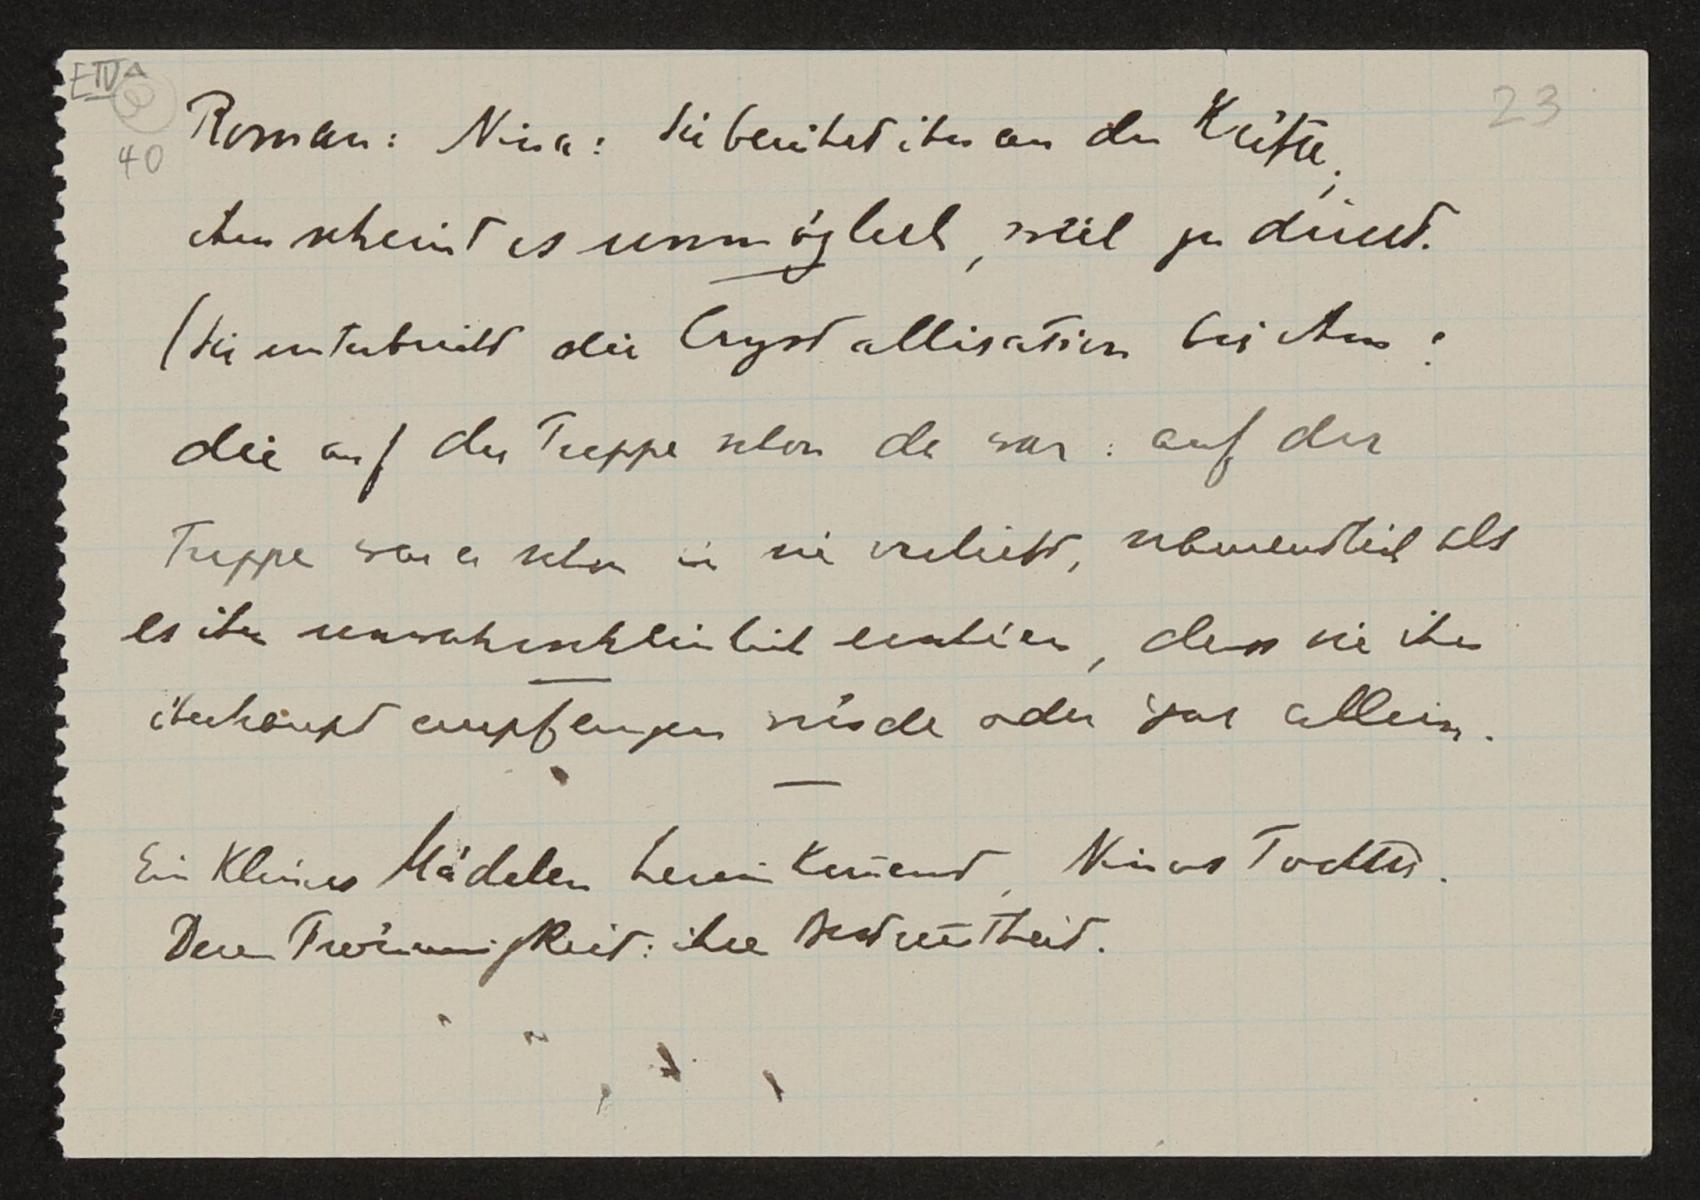 E IV A
40
23
Roman: Nina: Sie berührt ihn an der Hüfte,
ihm scheint es unmöglich, weil zu direct.
(Sie unterbricht die Crystallisation bei ihm:
die auf der Treppe schon da war: auf der
Treppe war er schon in sie verliebt, als
es ihm unwahrscheinlich erschien, dass sie ihn
überhaupt empfangen würde oder gar allein.
Ein kleines Mädchen hereinkommend, Ninas Tochter.
Deren ihre